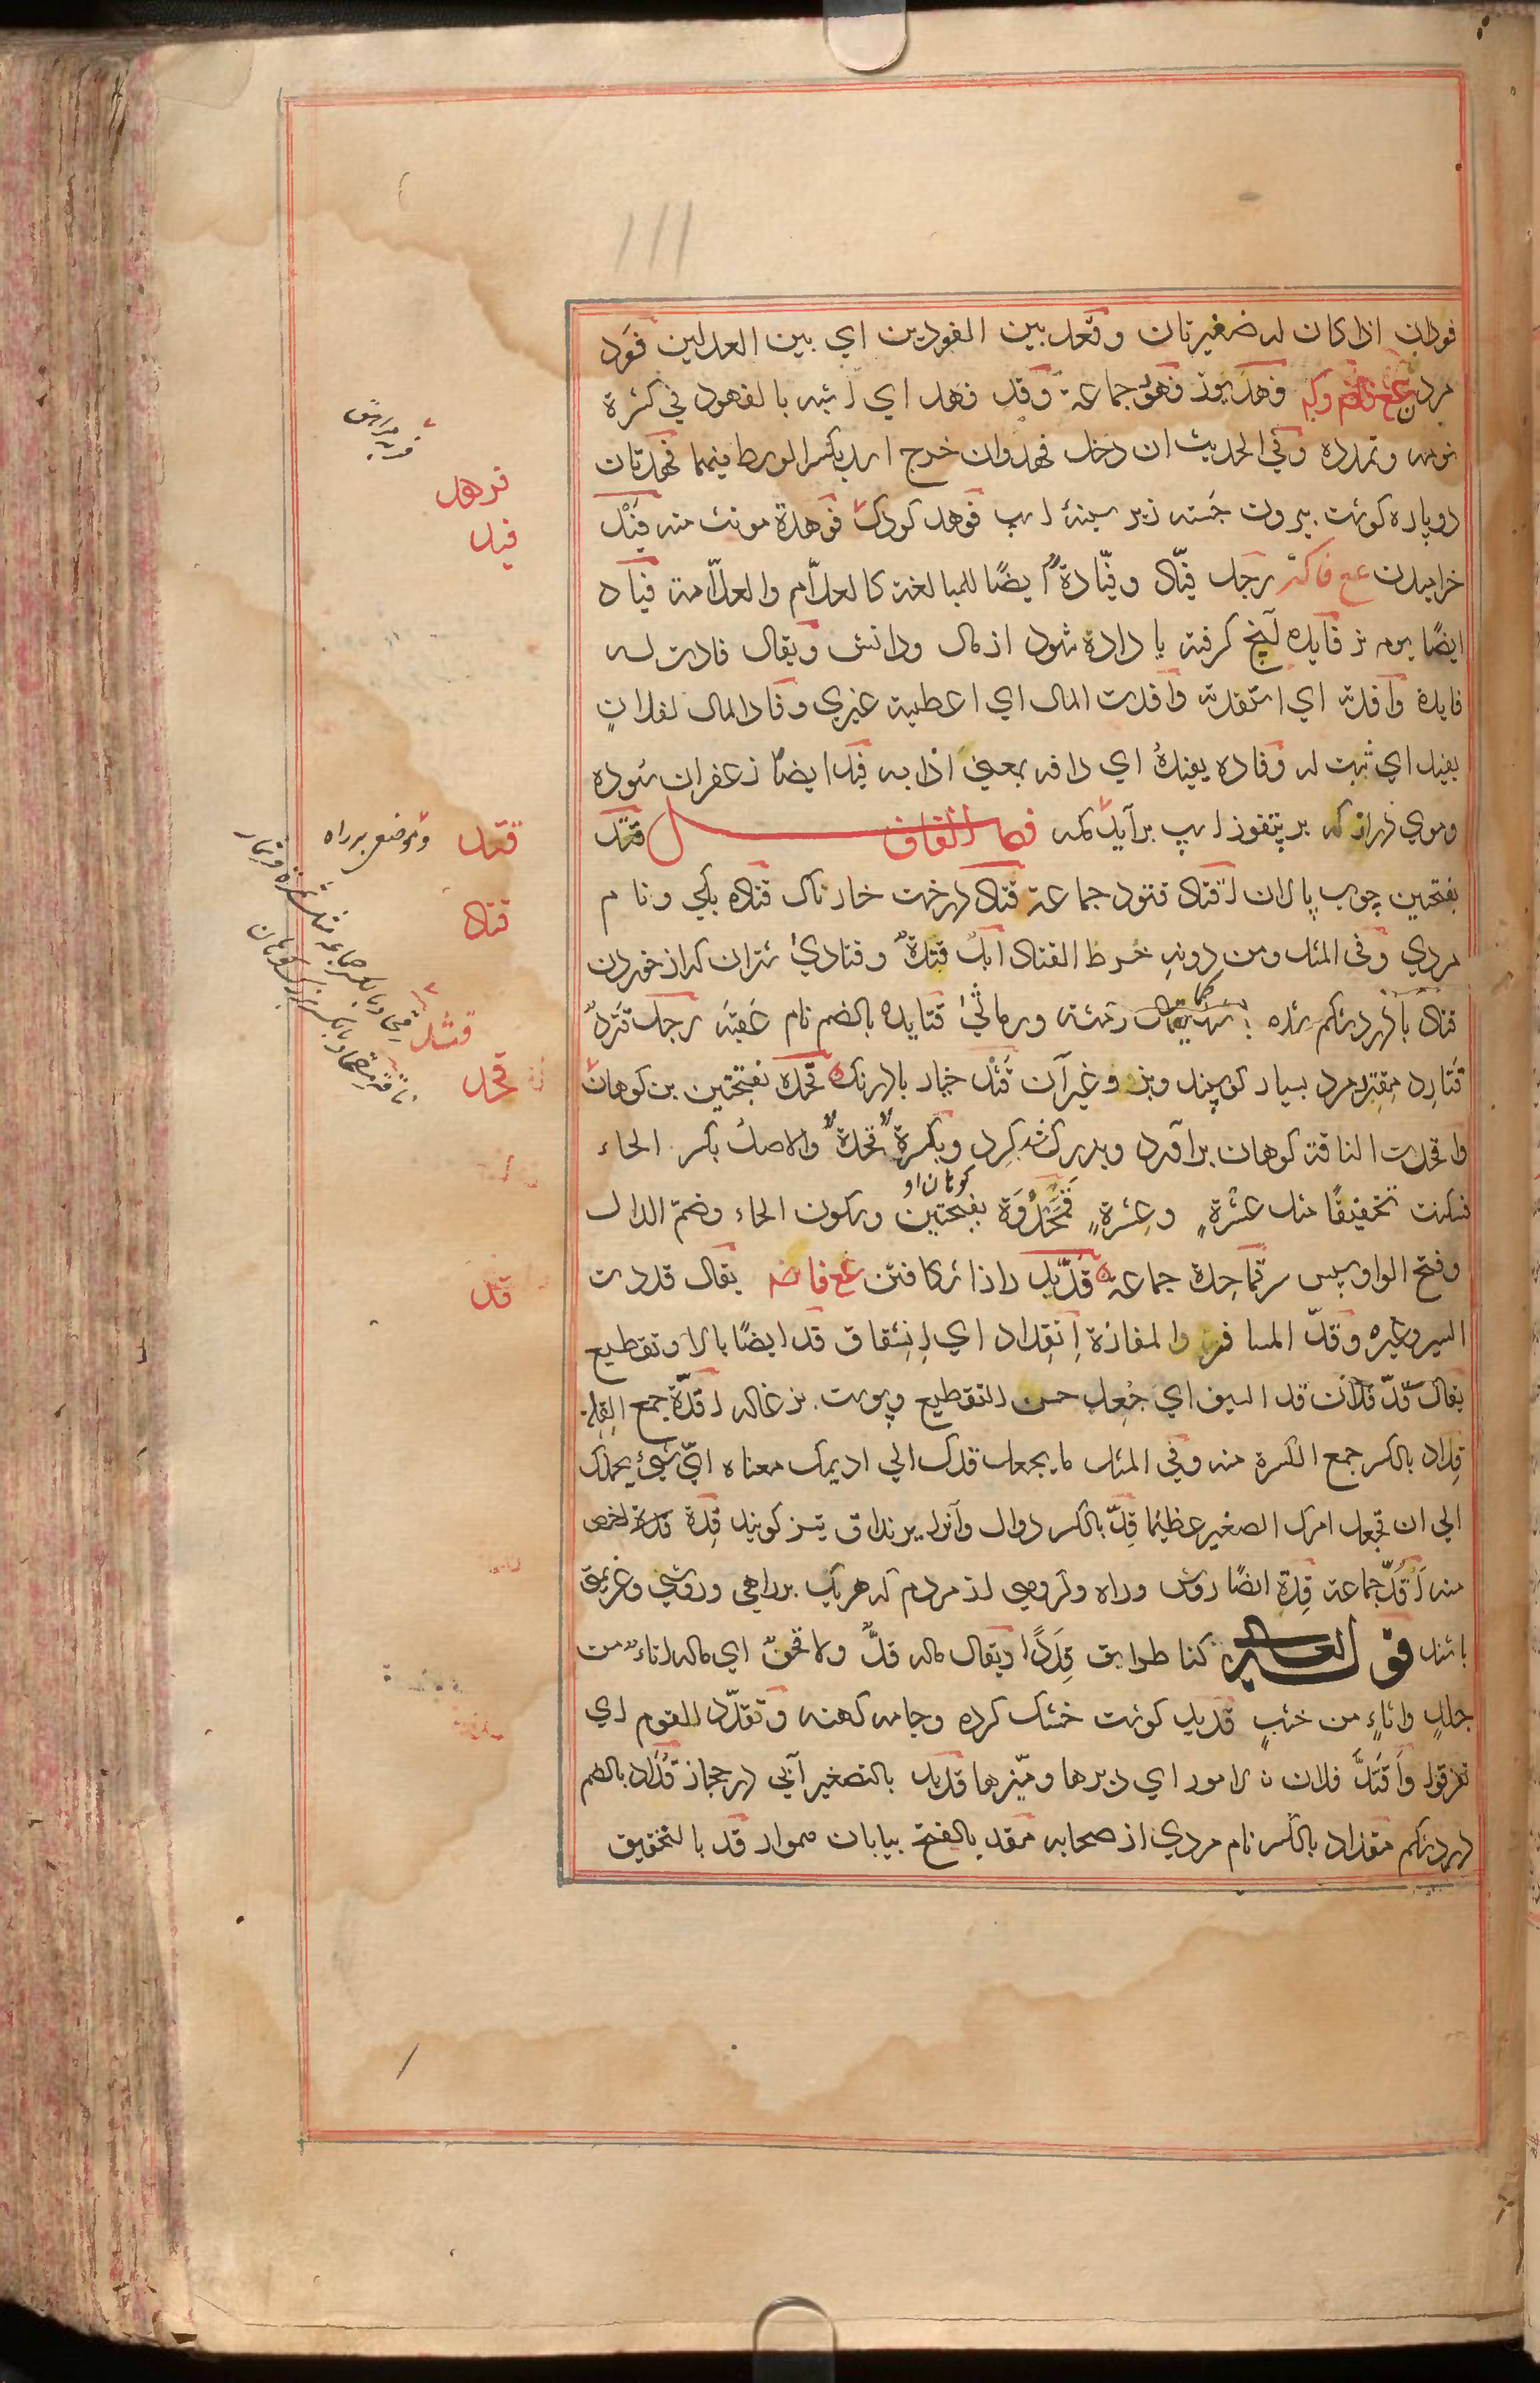 فودان اذا كان له ضفيرتان وقعد بين الفودين اي بين العدلين فَود
مردن فهد يوز فهود جماعة وقد فهد اي اشبه بالفهود في كثرة
نومه وتمدده وفي الحديث ان دخل فهد وان خرج اسد بكسر الوسط فيهما فهدتان
دو پاره كوشت بيرون جَسته زير سينهٔ اسپ فوهد كودك فوهدة مونث منه فَيْد
خراميدن رجل فيّاد وفيّادة ايضًا للمبالغة كالعلّام والعلّامة فياد
ايضًا بوم نر فايده آنچ كرفته يا داده شود از مال ودانش ويقال فادت له
فايدة وافدته اي استفدته وافدت المال اي اعطيته غيري وفاد المال لفلانٍ
يفيد اي ثبت له وفاده يفيدُهُ اي دافه بمعنى اذابه فيد ايضًا زعفران سوده
وموي دراز كه بر پتفوز اسپ برآيد كمه فصل القاف قتد
بفتحين چوب پالان اقتاد قتود جماعة قتاد درخت خارناك قتاده يكي ونام
مردي وفي المثل ومن دونهِ خرط القتاد ابل قتِدةٌ وقتاديٰ شتران كه از خوردن
قتاد بادرد شكم شده كما يقال رمثة ورماثيٰ قتايده بالضم نام عَقبَه رجل قَثِردٌ
قُثارِد مُقثرِد مرد بسيار كوسپند وبز وغير آن قَثَد خيار بادرنك قحدة بفتحتين بن كوهان
واقحدت الناقة كوهان برآورد وبزرك شد وبكرة قحدةٌ والاصل بكسر الحاء
فسكنت تخفيفًا مثل عشْرةٍ وعشِرةٍ قَمَحْدُوَة بفتحتين وسكون الحاء وضمّ الدال
كوهان او
وفتح الواو پس سر قماحد جماعة قدّ يد درازا شكافتن يقال قددت
السير وغيره وقدّ المسافر المفازة اِنقِداد اي اِنشِقاق قد ايضًا بالا وتقطيع
يقال قُدّ فلان قد السيف اي جُعِل حسن التقطيع وپوست بزغاله اقدّة جمع القلة
قِداد بالكسر جمع الكثرة منه وفي المثل ما يجعل قدك الي اديمك معناه ايّ شيء يحملك
الي ان تجعل امرك الصغير عظيمًا قِدّ بالكسر دوال وآنرا يرنداق نيز كويند قِدّة اخص
منه اَقُدّ جماعة قِدّة ايضًا روش وراه وكروهي از مردم كه هر يك بر راهي وروشي وعزيمتي
باشند قوله تعالى كنا طرايق قِدَدًا ويقال ماله قدٌّ ولا قحفٌ اي ماله اناءٌ من
جلدٍ واناءٍ من خشبٍ قديد كوشت خشك كرده وجامه كهنه وتقدّد القوم اي
تفرقوا واَقتدّ فلان الامور اي دبرها وميّزها قديد بالتصغير آبي در حجاز قُداد بالضم
درد شكم مقداد بالكسر نام مردي از صحابه مقد بالفتح بيابان هموار قد بالتخفيف
فرهد
فيد
قتد
وموضعي بر راه
قتاد
قثد
قحد
قد